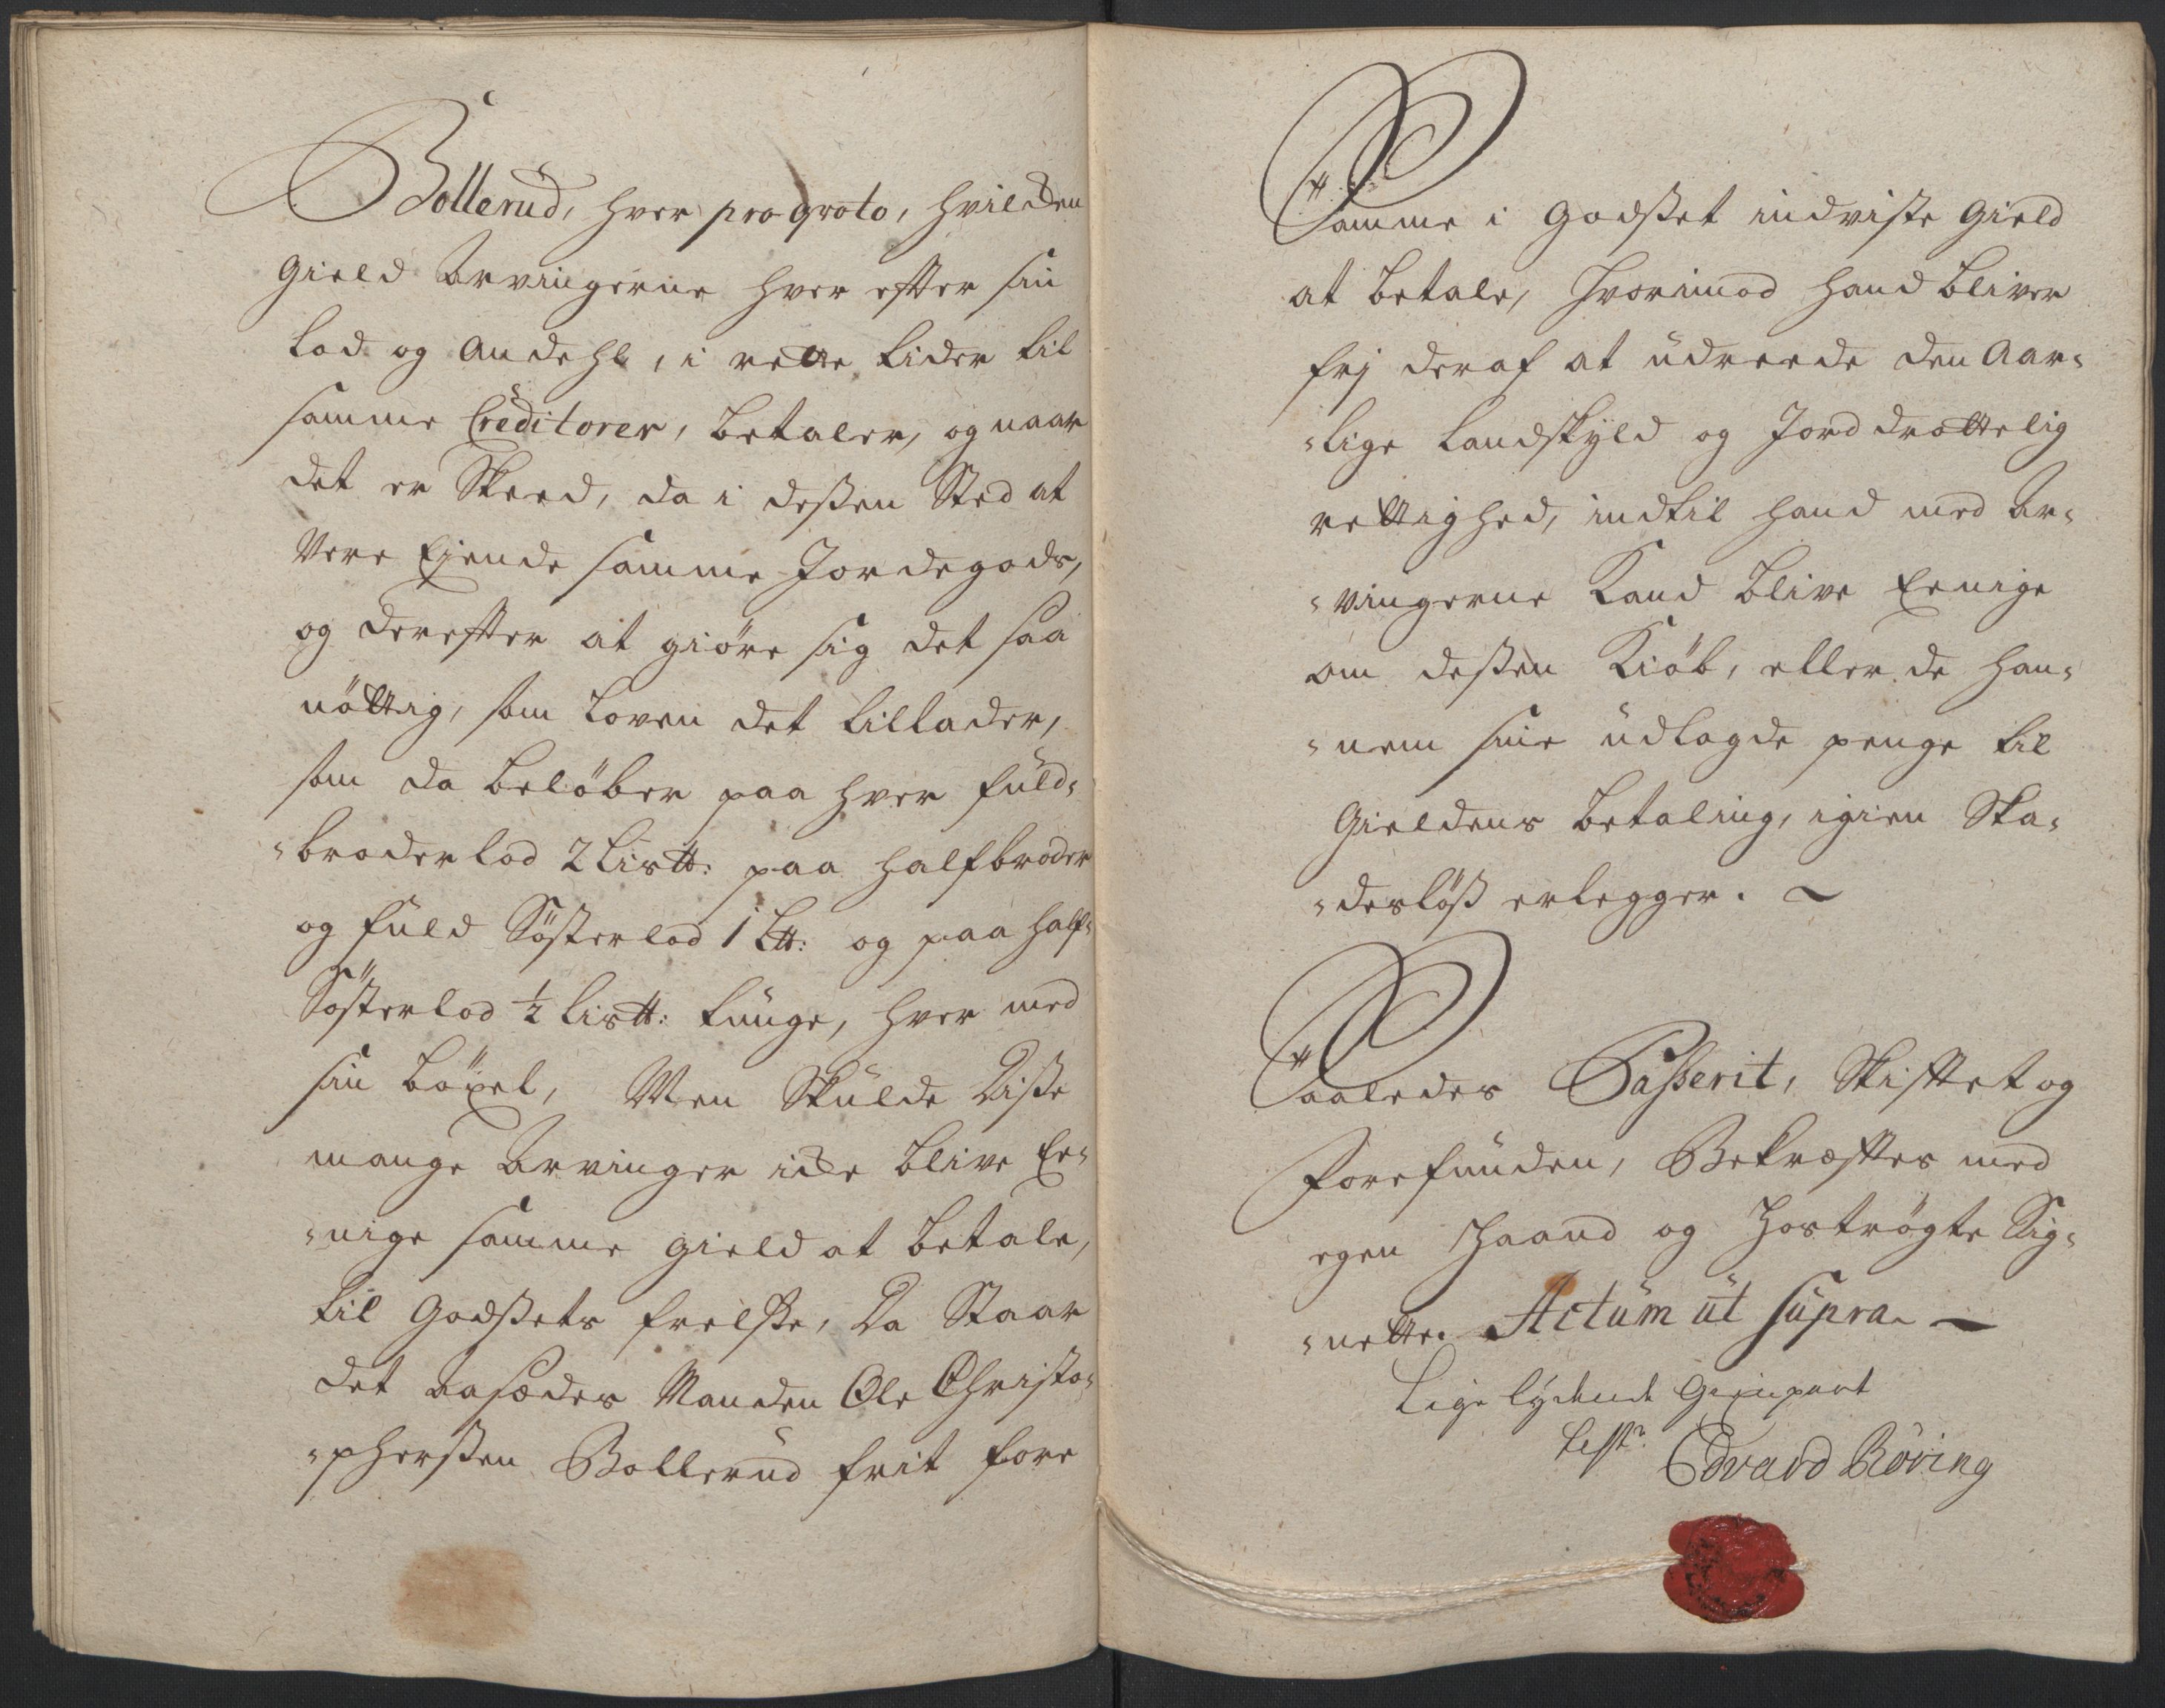 Bollerud, hver pro qvoto, hvilcken
Gield Arvingerne hver efter sin
Lod og Andehl, i rette tider til
samme Creditorer, betaler, og naar
det er Skeed, da i deßen Sted at
Vere Ejende samme Jordegods,
og derefter at giöre sig det saa
nöttig, som Loven det tillader,
som da belöber paa hver fuld-
-broder lod 2 Lis℔: paa halfbroder
og fuld Sösterlod 1 L℔: og paa half-
Sösterlod ½ Lis℔: tunge, hver med
sin böxel, Men Skulde Disse
mange Arvinger icke blive Ee-
-nige samme gield at betale,
til Godßets frelße, Da Staar
det aasædes Manden Ole Christo-
-pherßen Bollerud frit fore
Samme i Godßet indviste Gield
at betale, hvorimod hand bliver
frj deraf at udreede den Aar-
-lige Landskyld og Jorddrottelig
rettighed, indtil hand med Ar-
-vingerne Kand blive Eenige
om deßen Kiöb, eller de han-
-nem sine udlagde penge til
Gieldens betaling, igien Ska-
-deslöß erlegger.
Saaledes Passerit, Skiftet og
Forefunden, Bekræftes med
egen Haand og hoströgte Sig-
-nette. Actum ut supra.
Lige lydende Gienpart
test:
Edvard Röring